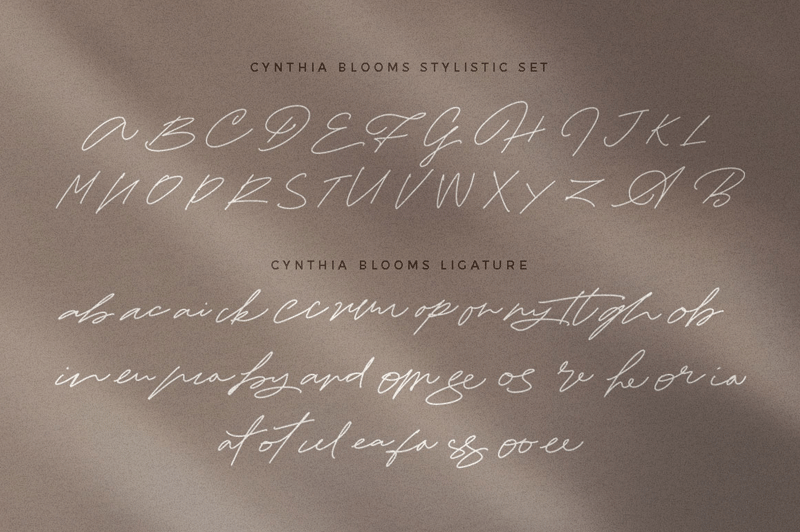 CYNTHIA BLOOMS STYLISTIC SET
A B C D E F G H I J K L
M N O P R S T U V W X Y Z A B
CYNTHIA BLOOMS LIGATURE
ab ac ai ck cc rr um op on ny tt gh ob
in en pr a by and om ge os re he or ia
at ot ul ea fa ss oo ee